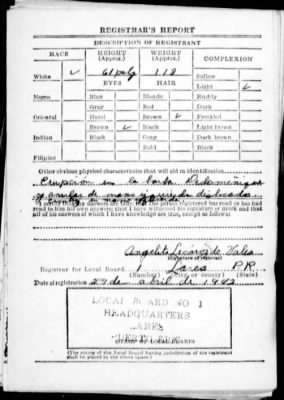 REGISTRAR'S REPORT
DESCRIPTION OF REGISTRANT
RACE HEIGHT (Approx.) WEIGHT (Approx.) COMPLEXION
White ✓ 61 pulg 118 Sallow
EYES HAIR Light ✓
Negro Blue Blonde Ruddy
Gray Red Dark
Oriental Hazel Brown ✓ Freckled
Brown ✓ Black Light brown
Indian Black Gray Dark brown
Bald Black
Filipino
Other obvious physical characteristics that will aid in identification
en la
y anular de mano izquierda
him his own answers; that I have witnessed his signature or mark and that
all of his answers of which I have knowledge are true, except as follows:
Angelita de
(Signature of registrar)
Registrar for Local Board 1 Lares P.R.
(Number) (City or county) (State)
Date of registration 27 de abril de 1942
LOCAL BOARD NO 1
HEADQUARTERS
LARES
(The stamp of the Local Board having jurisdiction of the registrant
shall be placed in the above space.)